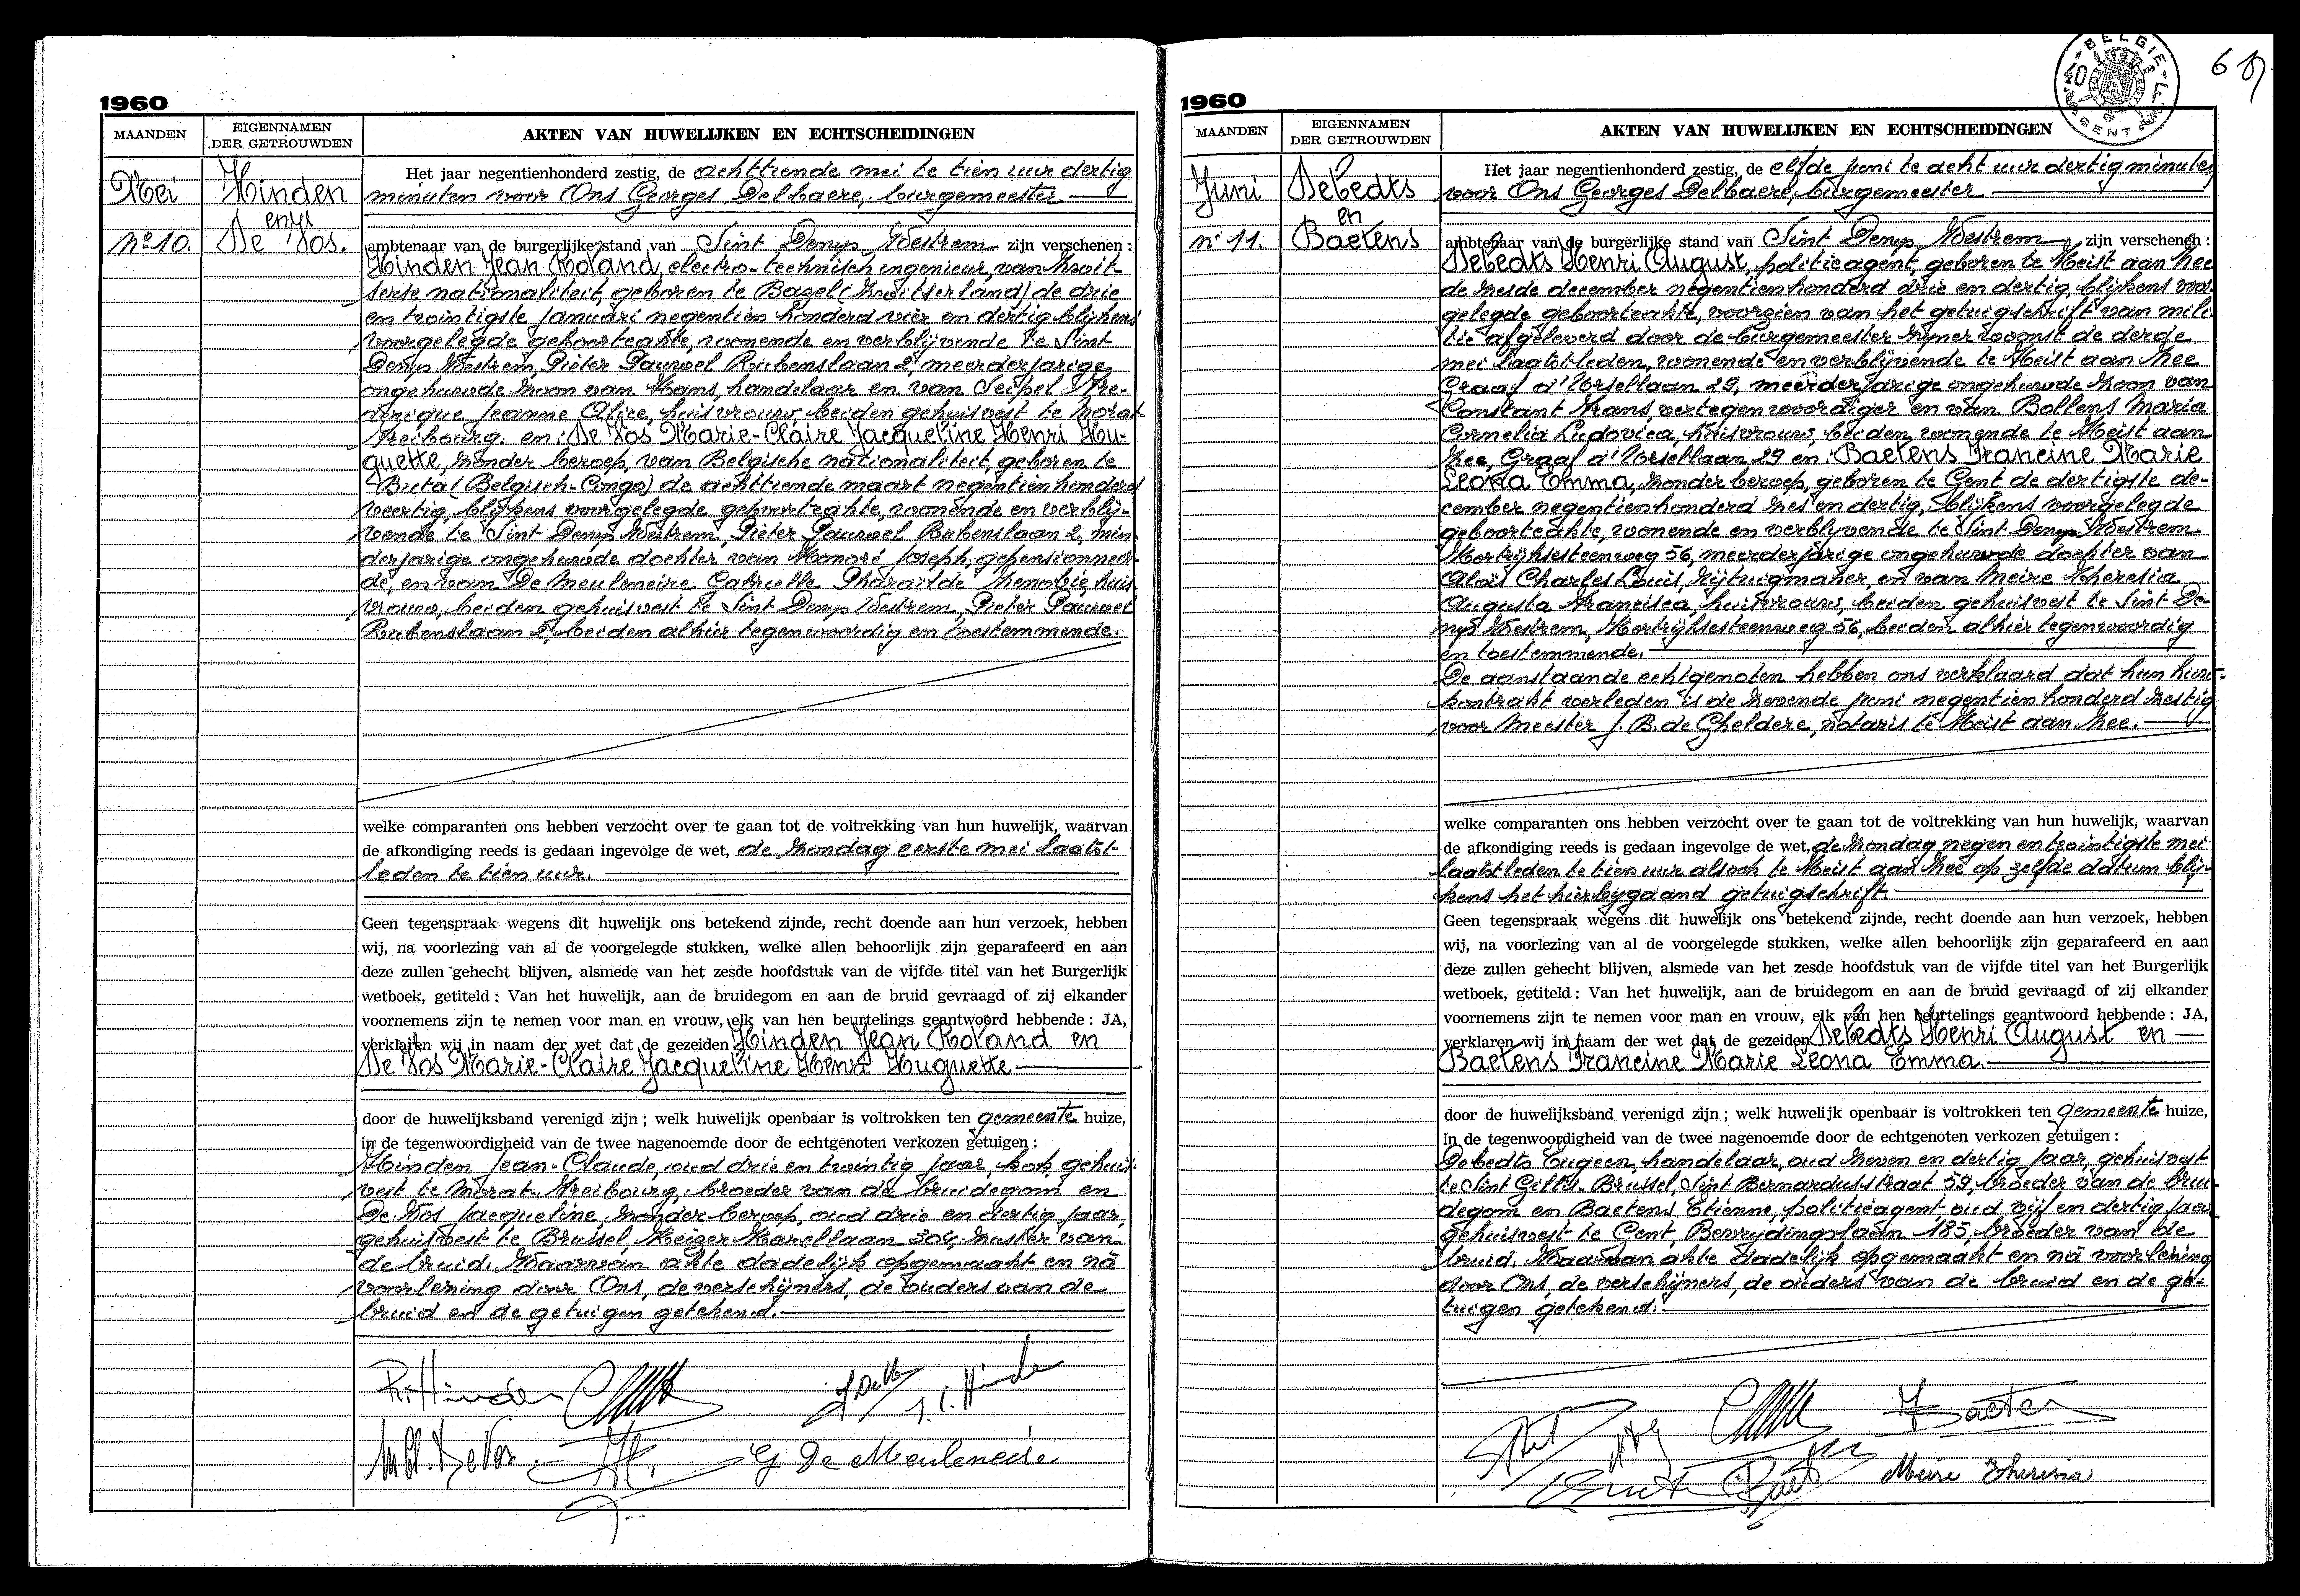 1960
MAANDEN
EIGENNAMEN
DER GETROUWDEN
AKTEN VAN HUWELIJKEN EN ECHTSCHEIDINGEN
Mei
Hinden
en
De Vos.
No 10.
Het jaar negentienhonderd zestig, de achttiende mei te tien uur dertig
minuten voor Ons Georges Delbaere, burgemeester
ambtenaar van de burgerlijke stand van Sint Denys Westrem zijn verschenen :
Hinden Jean Roland, electro-technisch ingenieur, van Zwit-
serse nationaliteit, geboren te Bazel (Zwitserland) de drie
en twintigste januari negentien honderd vier en dertig blijkens
voorgelegde geboorteakte, wonende en verblijvende te Sint
Denys Westrem, Pieter Pauwel Rubenslaan 2, meerderjarige
ongehuwde zoon van Hans, handelaar en van Fre-
derique Jeanne Alice, huisvrouw beiden gehuisvest te Morat-
Freibourg. en: De Vos Marie-Claire Jacqueline Henri Hu-
guette, zonder beroep, van Belgische nationaliteit, geboren te
Buta (Belgisch-Congo) de achttiende maart negentienhonderd
veertig, blijkens voorgelegde geboorteakte, wonende en verblij-
vende te Sint Denys Westrem, Pieter Pauwel Rubenslaan 2, min-
derjarige ongehuwde dochter van Honoré Joseph, gepensionneer-
de, en van De Meuleneire Gabrielle Pharaïlde Zenobie, huis-
vrouw, beiden gehuisvest te Sint Denys Westrem, Pieter Pauwel
Rubenslaan 2, beiden alhier tegenwoordig en toestemmende.
welke comparanten ons hebben verzocht over te gaan tot de voltrekking van hun huwelijk, waarvan
de afkondiging reeds is gedaan ingevolge de wet, de zondag eerste mei laatst-
leden te tien uur.
Geen tegenspraak wegens dit huwelijk ons betekend zijnde, recht doende aan hun verzoek, hebben
wij, na voorlezing van al de voorgelegde stukken, welke allen behoorlijk zijn geparafeerd en aan
deze zullen gehecht blijven, alsmede van het zesde hoofdstuk van de vijfde titel van het Burgerlijk
wetboek, getiteld : Van het huwelijk, aan de bruidegom en aan de bruid gevraagd of zij elkander
voornemens zijn te nemen voor man en vrouw, elk van hen beurtelings geantwoord hebbende : JA,
verklaren wij in naam der wet dat de gezeiden Hinden Jean Roland en
De Vos Marie-Claire Jacqueline Henri Huguette
door de huwelijksband verenigd zijn ; welk huwelijk openbaar is voltrokken ten gemeente huize,
in de tegenwoordigheid van de twee nagenoemde door de echtgenoten verkozen getuigen :
Hinden Jean-Claude, oud drie en twintig jaar, kok, gehuis-
vest te Morat-Freibourg, broeder van de bruidegom en
De Vos Jacqueline, zonder beroep, oud drie en dertig jaar,
gehuisvest te Brussel, Keizer Karellaan 304, zuster van
de bruid. Waarvan akte dadelijk opgemaakt en na
voorlezing door Ons, de verschijners, de ouders van de
bruid en de getuigen getekend.
R. Hinden
J. C. Hinde
M Cl. De Vos.
G De Meuleneire
1960
BELGIE
40 F
GENT
MAANDEN
EIGENNAMEN
DER GETROUWDEN
AKTEN VAN HUWELIJKEN EN ECHTSCHEIDINGEN
Juni
Debedts
en
Baetens
no 11.
Het jaar negentienhonderd zestig, de elfde juni te acht uur dertig minuten
voor Ons Georges Delbaere, burgemeester
ambtenaar van de burgerlijke stand van Sint Denys Westrem zijn verschenen :
Debedts Henri August, politieagent, geboren te Heist aan Zee
de zesde december negentienhonderd drie en dertig, blijkens voor-
gelegde geboorteakte, voorzien van het getuigschrift van mili-
tie afgeleverd door de burgemeester zijner woonst de derde
mei laatstleden, wonende en verblijvende te Heist aan Zee
Graaf d'Ursellaan 29, meerderjarige ongehuwde zoon van
Constant Frans vertegenwoordiger en van Bollens Maria
Cornelia Ludovica, huisvrouw, beiden wonende te Heist aan
Zee, Graaf d'Ursellaan 29 en: Baetens Francine Marie
Leona Emma, zonder beroep, geboren te Gent de dertigste de-
cember negentienhonderd zes en dertig, blijkens voorgelegde
geboorteakte, wonende en verblyvende te Sint Denys Westrem
Kortrijksesteenweg 56, meerderjarige ongehuwde dochter van
Aloïs Charles Louis, rijtuigmaker, en van Meire Theresia
Augusta Francisca, huisvrouw, beiden gehuisvest te Sint De-
nys Westrem, Kortrijksesteenweg 56, beiden alhier tegenwoordig
en toestemmende.
De aanstaande echtgenoten hebben ons verklaard dat hun huw-
kontrakt verleden is de zevende juni negentienhonderd zestig
voor Meester J. B. de Gheldere, notaris te Heist aan Zee.
welke comparanten ons hebben verzocht over te gaan tot de voltrekking van hun huwelijk, waarvan
de afkondiging reeds is gedaan ingevolge de wet, de zondag negen en twintigste mei
laatstleden te tien uur alsook te Heist aan Zee op zelfde datum blij-
kens het hierbygaand getuigschrift.
Geen tegenspraak wegens dit huwelijk ons betekend zijnde, recht doende aan hun verzoek, hebben
wij, na voorlezing van al de voorgelegde stukken, welke allen behoorlijk zijn geparafeerd en aan
deze zullen gehecht blijven, alsmede van het zesde hoofdstuk van de vijfde titel van het Burgerlijk
wetboek, getiteld : Van het huwelijk, aan de bruidegom en aan de bruid gevraagd of zij elkander
voornemens zijn te nemen voor man en vrouw, elk van hen beurtelings geantwoord hebbende : JA,
verklaren wij in naam der wet dat de gezeiden Debedts Henri August en
Baetens Francine Marie Leona Emma.
door de huwelijksband verenigd zijn ; welk huwelijk openbaar is voltrokken ten gemeente huize,
in de tegenwoordigheid van de twee nagenoemde door de echtgenoten verkozen getuigen :
Debedts Eugeen, handelaar, oud zeven en dertig jaar, gehuisvest
te Sint Gillis-Brussel, Sint Bernardusstraat 59, broeder van de brui-
degom en Baetens Etienne, politieagent, oud vijf en dertig jaar
gehuisvest te Gent, Bevrydingslaan 185, broeder van de
bruid. Waarvan akte dadelijk opgemaakt en na voorlezing
door Ons, de verschijners, de ouders van de bruid en de ge-
tuigen getekend.
Meire Theresia